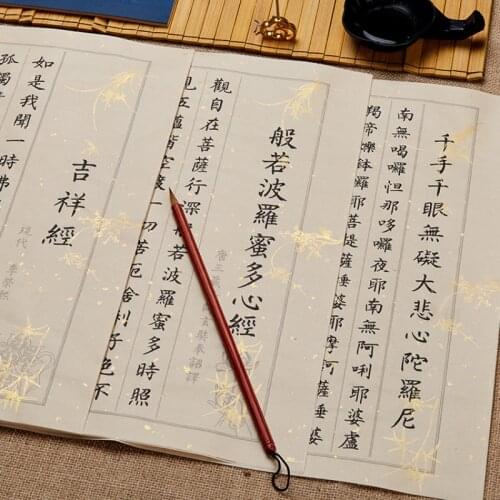 千手千眼無礙大悲心陀羅尼
南無喝囉怛那哆囉夜耶南無阿唎耶婆盧
羯帝爍鉢囉耶菩提薩埵婆耶摩訶薩埵婆
般若波羅蜜多心經
觀自在菩薩行深般若波羅蜜多時照
見五蘊皆空度一切苦厄舍利子色不
吉祥經
如是我聞一時佛
孤獨